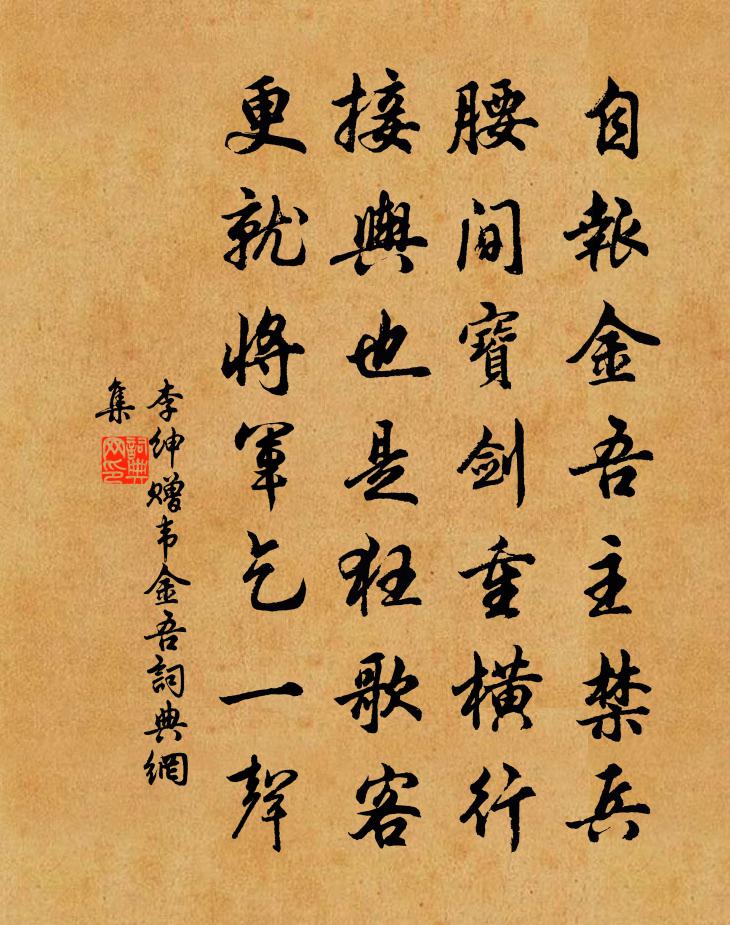 自報金吾主禁兵
腰間寶劍重橫行
接輿也是狂歌客
更就將軍乞一聲
李紳贈韦金吾詞典網
集
詞典
网印